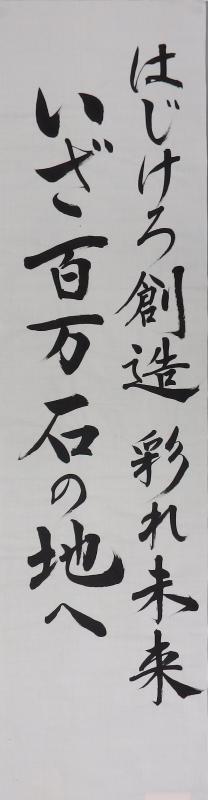 はじけろ創造 彩れ未来
いざ百万石の地へ